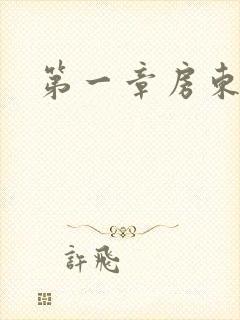 第一章房東
許飛